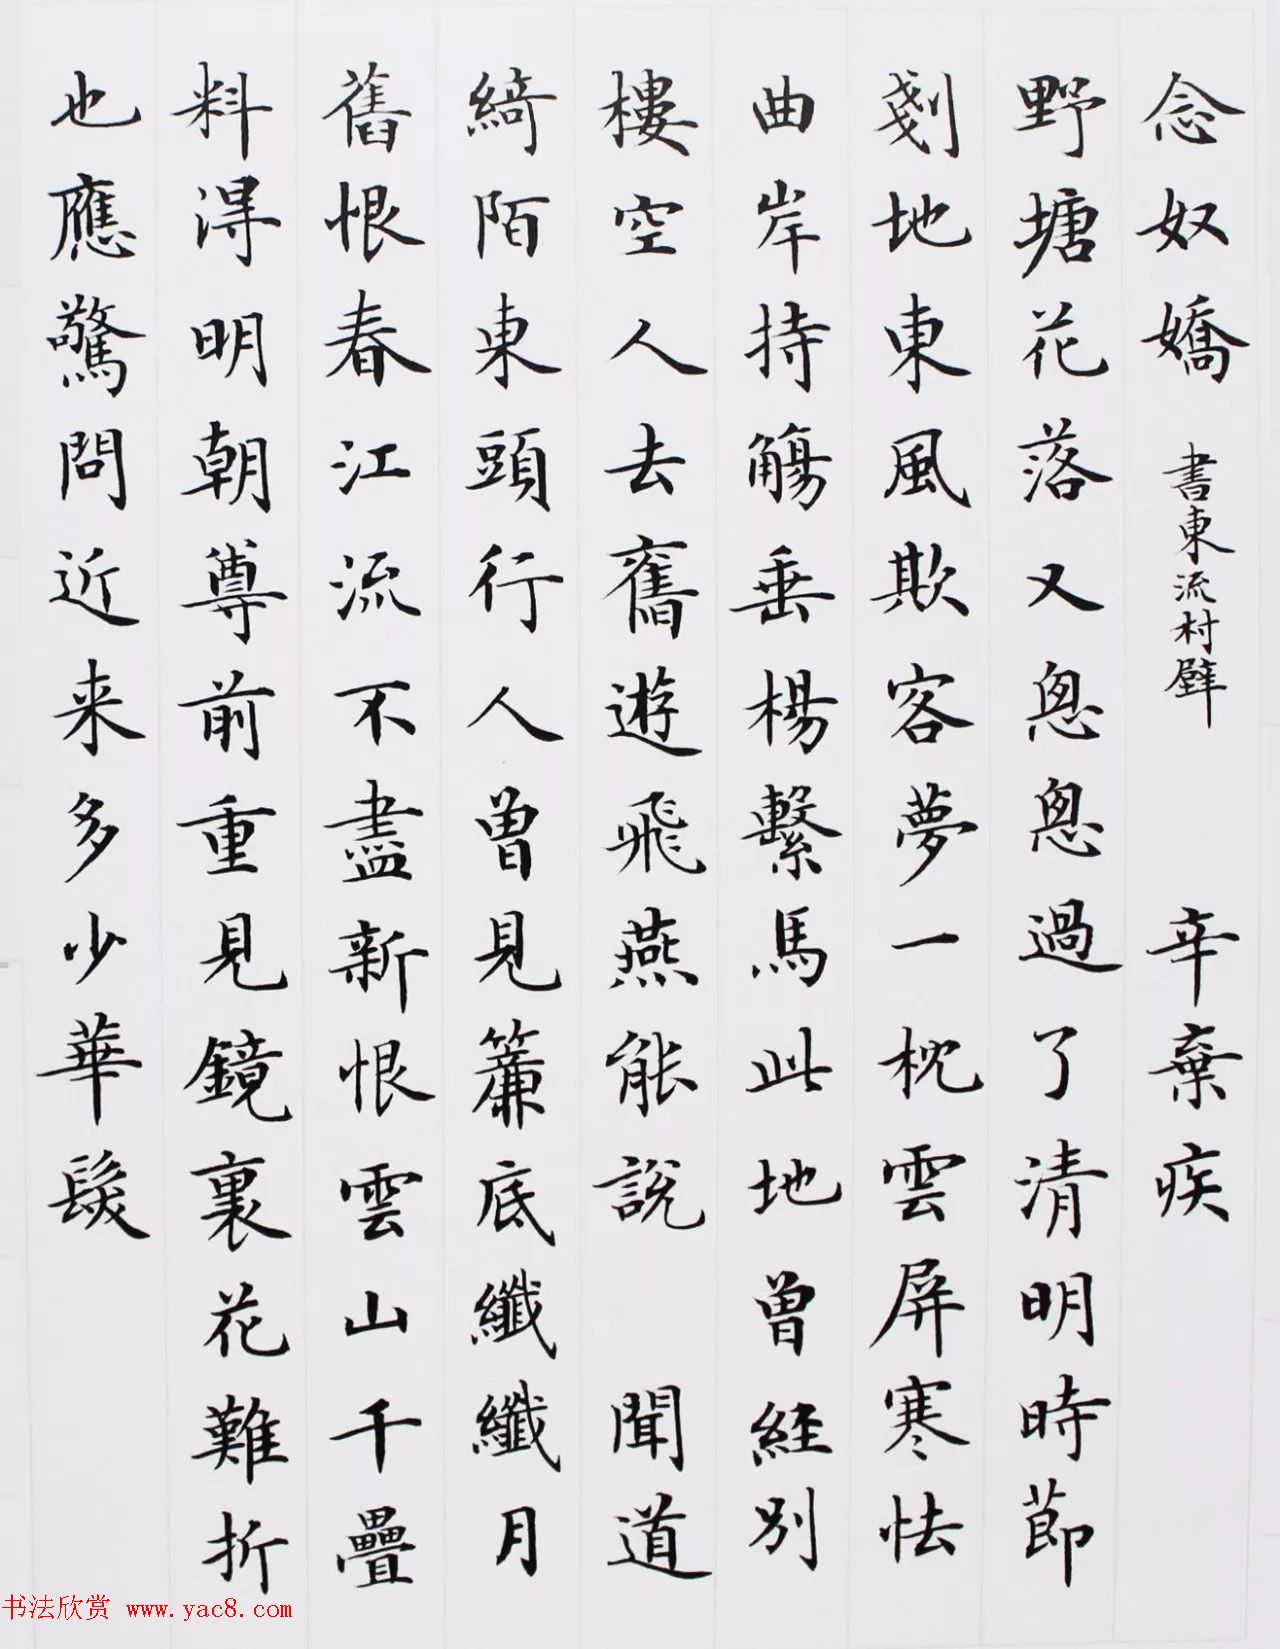 念奴嬌 書東流村壁 辛棄疾
野塘花落又怱怱過了清明時節
剗地東風欺客夢一枕雲屏寒怯
曲岸持觴垂楊繫馬此地曾經別
樓空人去舊遊飛燕能說 聞道
綺陌東頭行人曾見簾底纖纖月
舊恨春江流不盡新恨雲山千疊
料得明朝尊前重見鏡裏花難折
也應驚問近来多少華髮
书法欣赏 www.yac8.com